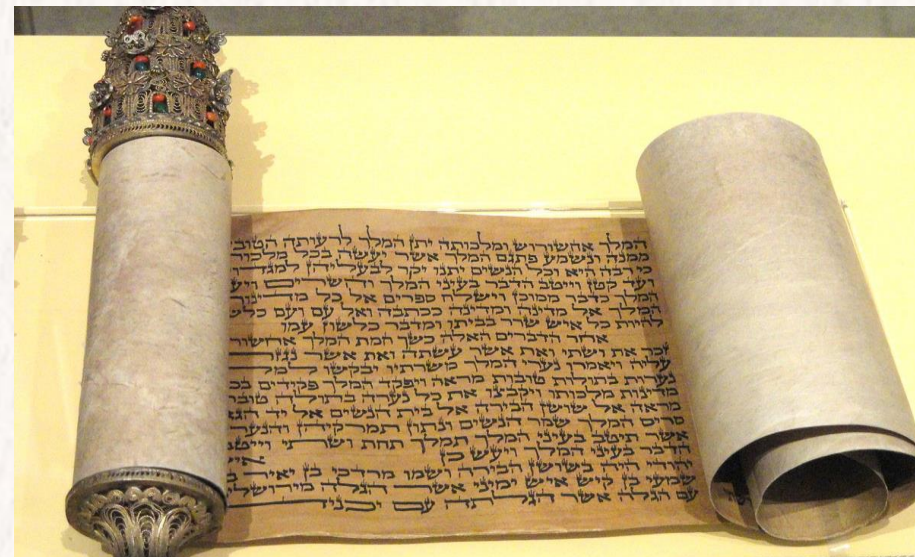 המלך אחשורוש ומלכותה יתן המלך לרעותה הטובה
ממנה ונשמע פתגם המלך אשר יעשה בכל מלכותו
כי רבה היא וכל הנשים יתנו יקר לבעליהן למגדול
ועד קטן וייטב הדבר בעיני המלך והשרים ויעש
המלך כדבר ממוכן וישלח ספרים אל כל מדינות
המלך אל מדינה ומדינה ככתבה ואל עם ועם כלשונו
להיות כל איש שרר בביתו ומדבר כלשון עמו
אחר הדברים האלה כשך חמת המלך אחשורוש
זכר את ושתי ואת אשר עשתה ואת אשר נגזר
עליה ויאמרו נערי המלך משרתיו יבקשו למלך
נערות בתולות טובות מראה ויפקד המלך פקידים בכל
מדינות מלכותו ויקבצו את כל נערה בתולה טובת
מראה אל שושן הבירה אל בית הנשים אל יד הגא
סריס המלך שמר הנשים ונתון תמרקיהן והנערה
אשר תיטב בעיני המלך תמלך תחת ושתי וייטב
הדבר בעיני המלך ויעש כן איש
יהודי היה בשושן הבירה ושמו מרדכי בן יאיר בן
שמעי בן קיש איש ימיני אשר הגלה מירושלים
עם הגלה אשר הגלתה עם יכניה